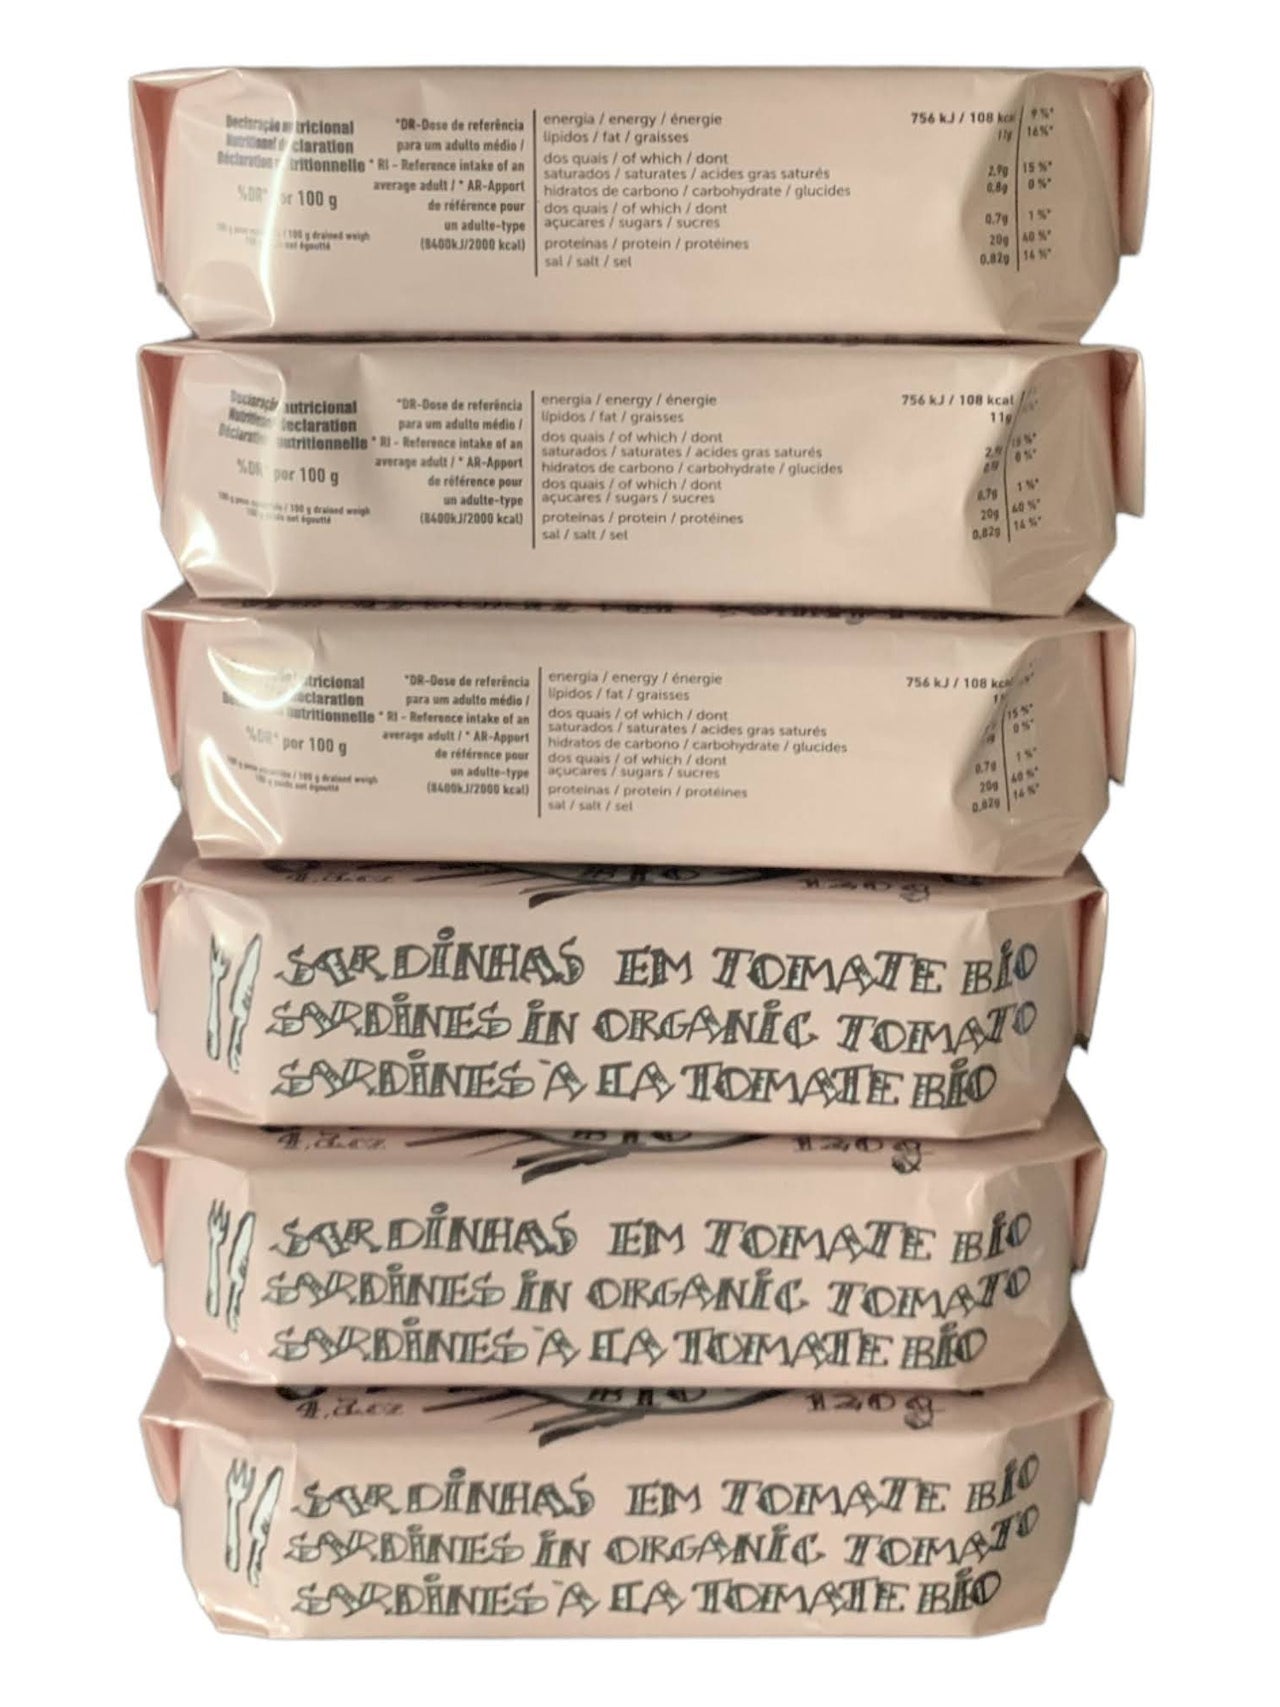 nutricional
claration
nutritionnelle
%DR* por 100 g
/ 100 g drained weigh
net égoutté
*DR-Dose de referência
para um adulto médio /
* RI - Reference intake of an
average adult / * AR-Apport
de référence pour
un adulte-type
(8400kJ/2000 kcal)
energia / energy / énergie 756 kJ / 108 kcal 9 %*
lípidos / fat / graisses 11g 16%*
dos quais / of which / dont
saturados / saturates / acides gras saturés 2,9g 15 %*
hidratos de carbono / carbohydrate / glucides 0,8g 0 %*
dos quais / of which / dont
açucares / sugars / sucres 0,7g 1 %*
proteínas / protein / protéines 20g 40 %*
sal / salt / sel 0,82g 14 %*
nutricional
declaration
nutritionnelle
por 100 g
/ 100 g drained weigh
net égoutté
*DR-Dose de referência
para um adulto médio /
* RI - Reference intake of an
average adult / * AR-Apport
de référence pour
un adulte-type
(8400kJ/2000 kcal)
energia / energy / énergie 756 kJ / 108 kcal
lípidos / fat / graisses 11g
dos quais / of which / dont
saturados / saturates / acides gras saturés 15 %*
hidratos de carbono / carbohydrate / glucides 0 %*
dos quais / of which / dont
açucares / sugars / sucres 0,7g 1 %*
proteínas / protein / protéines 20g 40 %*
sal / salt / sel 0,82g 14 %*
tricional
eclaration
nutritionnelle
%DR* por 100 g
/ 100 g drained weigh
net égoutté
*DR-Dose de referência
para um adulto médio /
* RI - Reference intake of an
average adult / * AR-Apport
de référence pour
un adulte-type
(8400kJ/2000 kcal)
energia / energy / énergie 756 kJ / 108 kcal
lípidos / fat / graisses
dos quais / of which / dont
saturados / saturates / acides gras saturés 15 %*
hidratos de carbono / carbohydrate / glucides 0 %*
dos quais / of which / dont
açucares / sugars / sucres 0,7g 1 %*
proteínas / protein / protéines 20g 40 %*
sal / salt / sel 0,82g 14 %*
BIO 120g
SARDINHAS EM TOMATE BIO
SARDINES IN ORGANIC TOMATO
SARDINES À LA TOMATE BIO
BIO 120g
SARDINHAS EM TOMATE BIO
SARDINES IN ORGANIC TOMATO
SARDINES À LA TOMATE BIO
BIO 120g
SARDINHAS EM TOMATE BIO
SARDINES IN ORGANIC TOMATO
SARDINES À LA TOMATE BIO